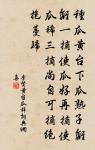 種瓜黃台下瓜熟子
離一摘使瓜好再摘使
瓜稀三摘尚自可摘絕
抱蔓歸